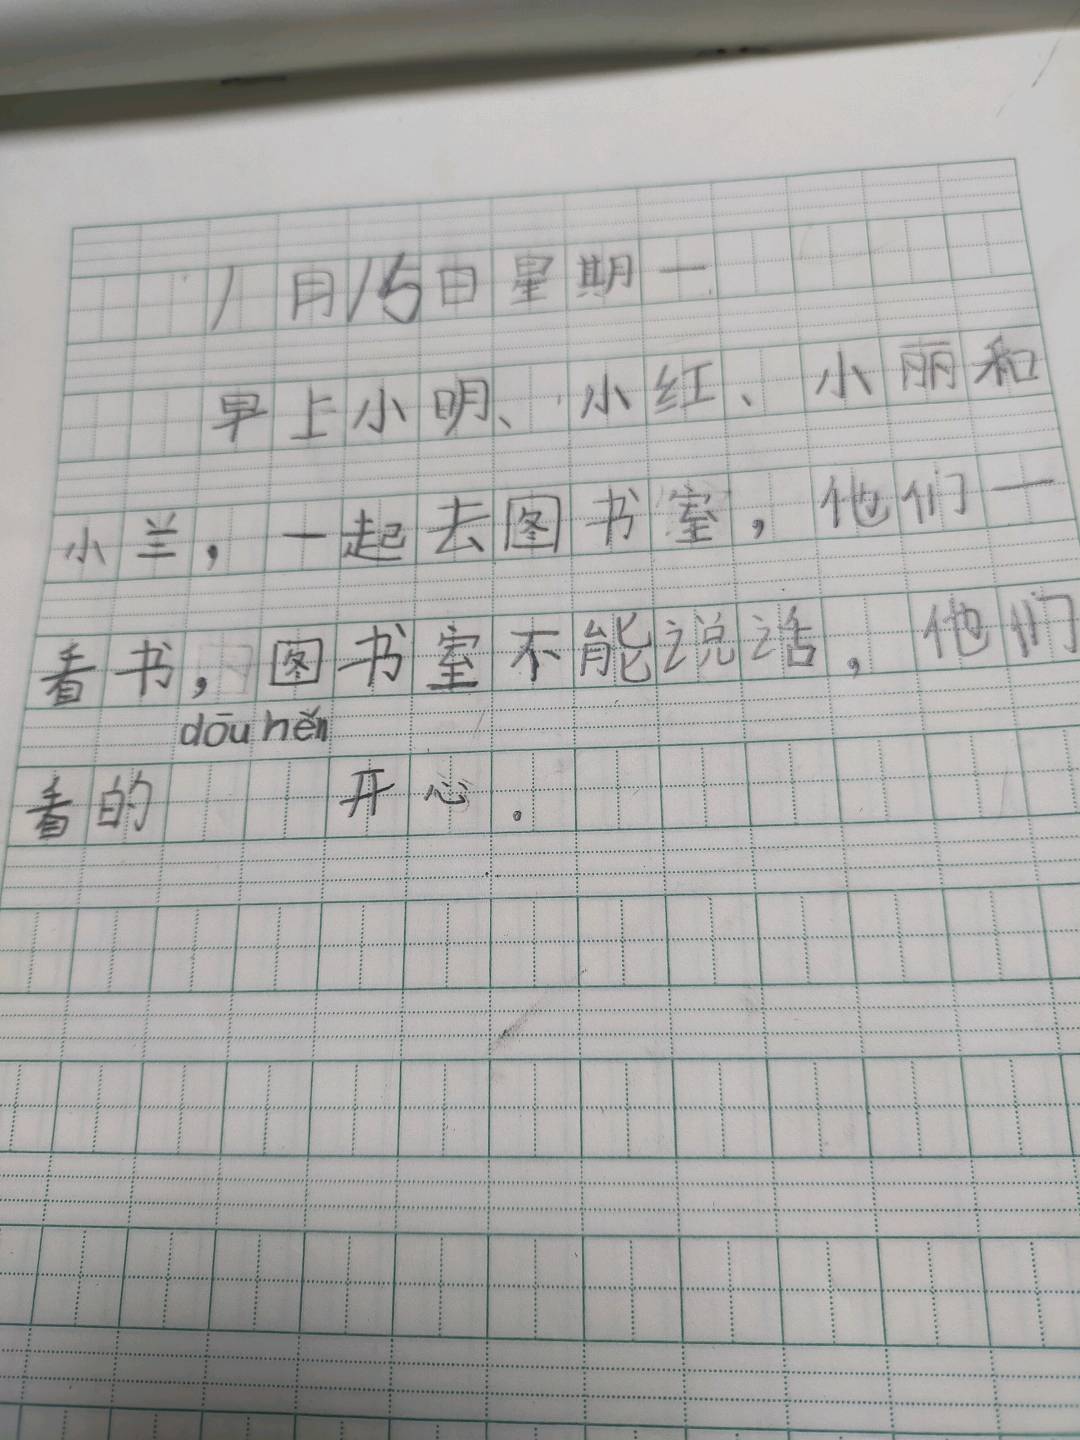 1月15日星期一
早上小明、小红、小丽和
小兰，一起去图书室，他们一
看书，图书室不能说话，他们
dōu hěn
看的 开心。